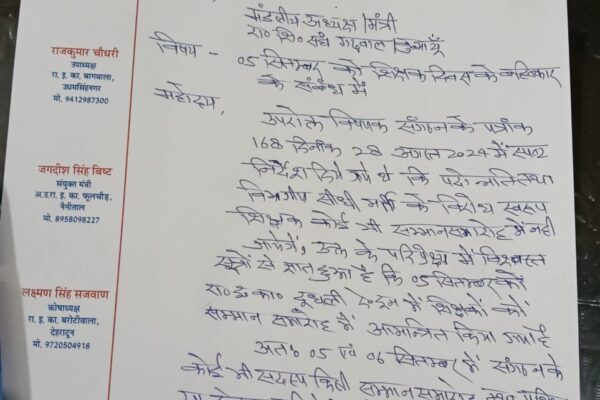 मंडलीय अध्यक्ष मंत्री
रा० शि० संघ गढ़वाल कुमाऊँ
विषय - 05 सितम्बर को शिक्षक दिवस के बहिष्कार
के संबंध में
महोदय,
उपरोक्त विषयक संगठन के पत्रांक
168 दिनांक 28 अगस्त 2024 में स्पष्ट
निर्देश दिये गये थे कि पदोन्नति तथा
विभागीय सीधी भर्ती के विरोध स्वरूप
शिक्षक कोई भी सम्मान समारोह में नही
जायेंगे, उक्त के परिपेक्ष में विश्वस्त
सूत्रों से ज्ञात हुआ है कि 05 सितम्बर को
रा० इ० का० दूधली दे०दून में शिक्षकों को
सम्मान समारोह में आमन्त्रित किया गया है
अतः 05 एवं 06 सितम्बर में संगठन के
कोई भी सदस्य किसी सम्मान समारोह तथा
राजकुमार चौधरी
उपाध्यक्ष
रा. इ. का. बागवाला,
उधमसिंहनगर
मो. 9412987300
जगदीश सिंह बिष्ट
संयुक्त मंत्री
अ.द.रा. इ. का. फूलचौड़,
नैनीताल
मो. 8958098227
लक्ष्मण सिंह सजवाण
कोषाध्यक्ष
रा. इ. का. बरोटीवाला,
देहरादून
मो. 9720504918